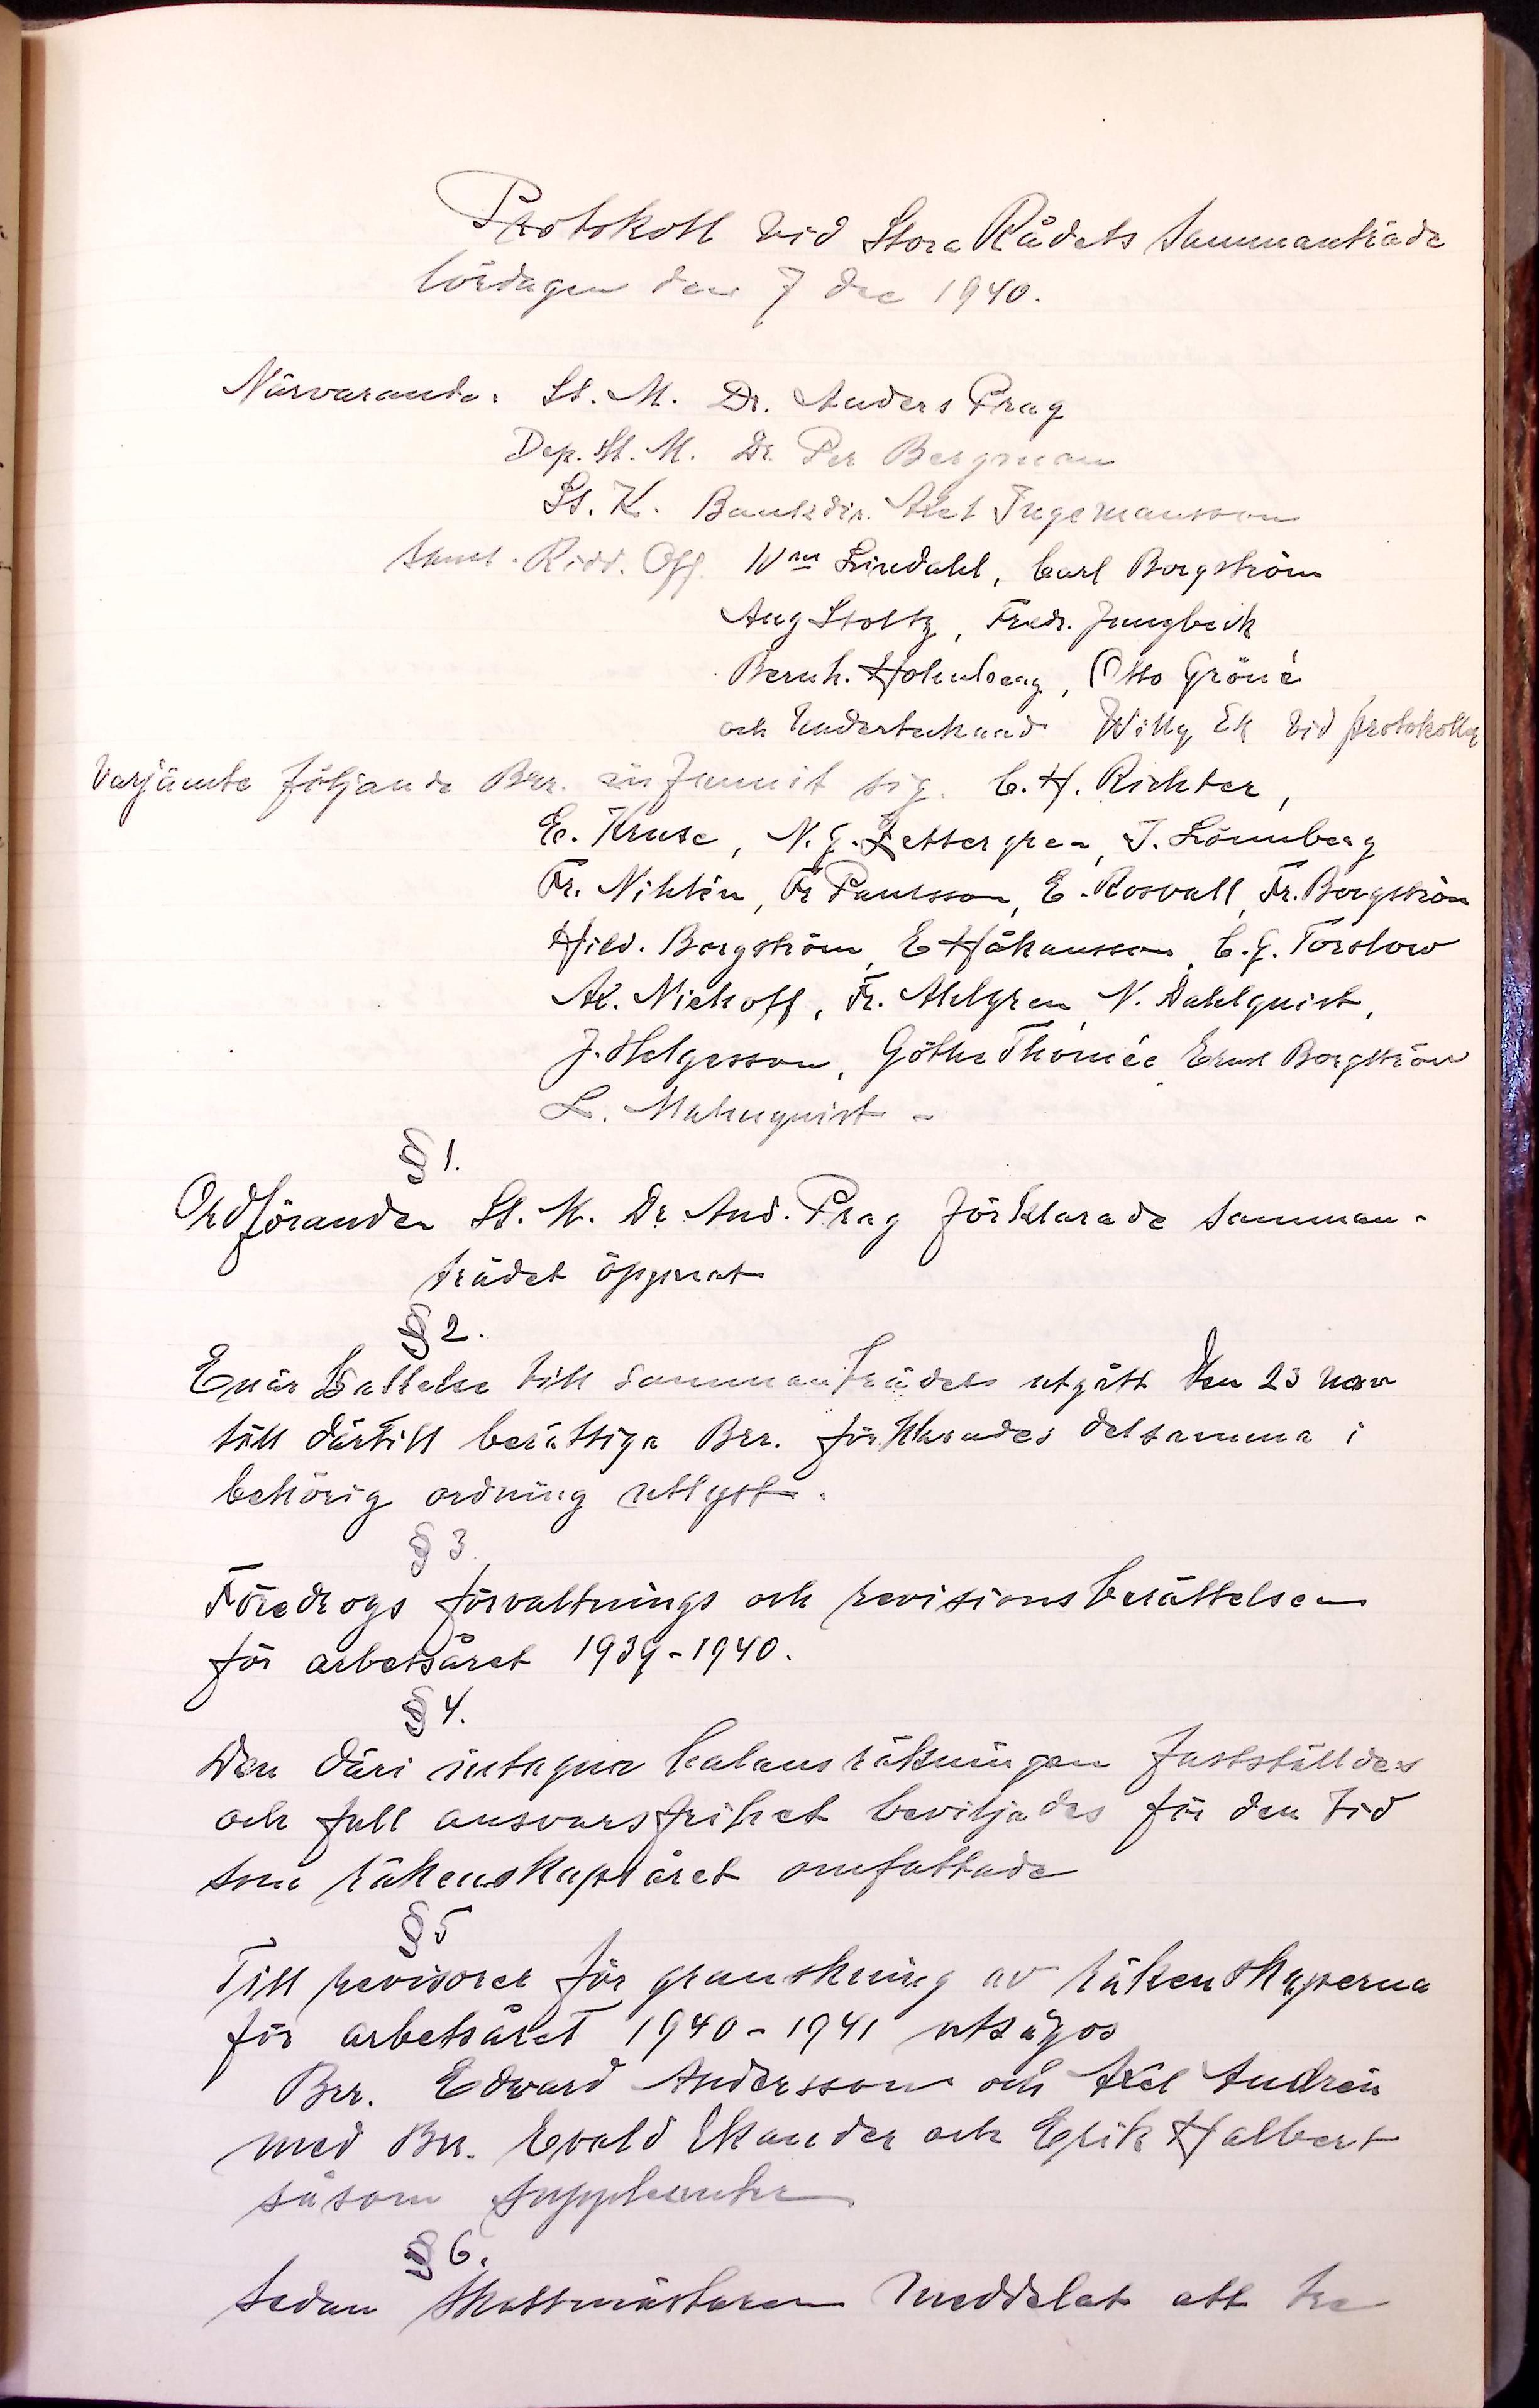 Protokoll vid Stora Rådets Sammanträde
lördagen den 7 dec 1940.
Närvarande: St. M. Dr. Anders Prag
Dep. St. M. Dr. Per Bergman
St. K. Bankdir. Axel Ingemansson
Samt. Ridd. Off. Wm Lindahl, Carl Borgström
Aug Stoltz, Fredr. Jungbeck
Bernh. Holmberg, Otto Gröné
och Undertecknad Willy Ek vid protokollet
Varjämte följande Brr. infunnit sig. C. H. Richter,
E. Kruse, N. G. Zettergren, J. Lönnberg
Fr. Nihlén, Fr Paulsson, E. Rosvall, Fr. Borgström
Hild. Borgström, E Håkansson, C. G. Torslow
Ax. Niehoff, Fr. Ahlgren, N. Dahlquist,
J. Helgesson, Göthe Thomée, Ernst Borgström
L. Malmquist -
§ 1.
Ordföranden St. M. Dr. And. Prag förklarade samman-
trädet öppnat
§ 2.
Enär kallelse till sammanträdet utgått den 23 nov
till därtill berättiga Brr. förklarades detsamma i
behörig ordning utlyst.
§ 3.
Föredrogs förvaltnings och revisionsberättelsen
för arbetsåret 1939-1940.
§ 4.
Den däri intagna balansräkningen fastställdes
och full ansvarsfrihet beviljades för den tid
som räkenskapsåret omfattade
§ 5
Till revisorer för granskning av räkenskaperna
för arbetsåret 1940-1941 utsågos
Brr. Edward Andersson och Axel Andrén
med Brr. Evald Ekander och Erik Halbert
såsom suppleanter
§ 6.
Sedan Skattmästaren meddelat att tre